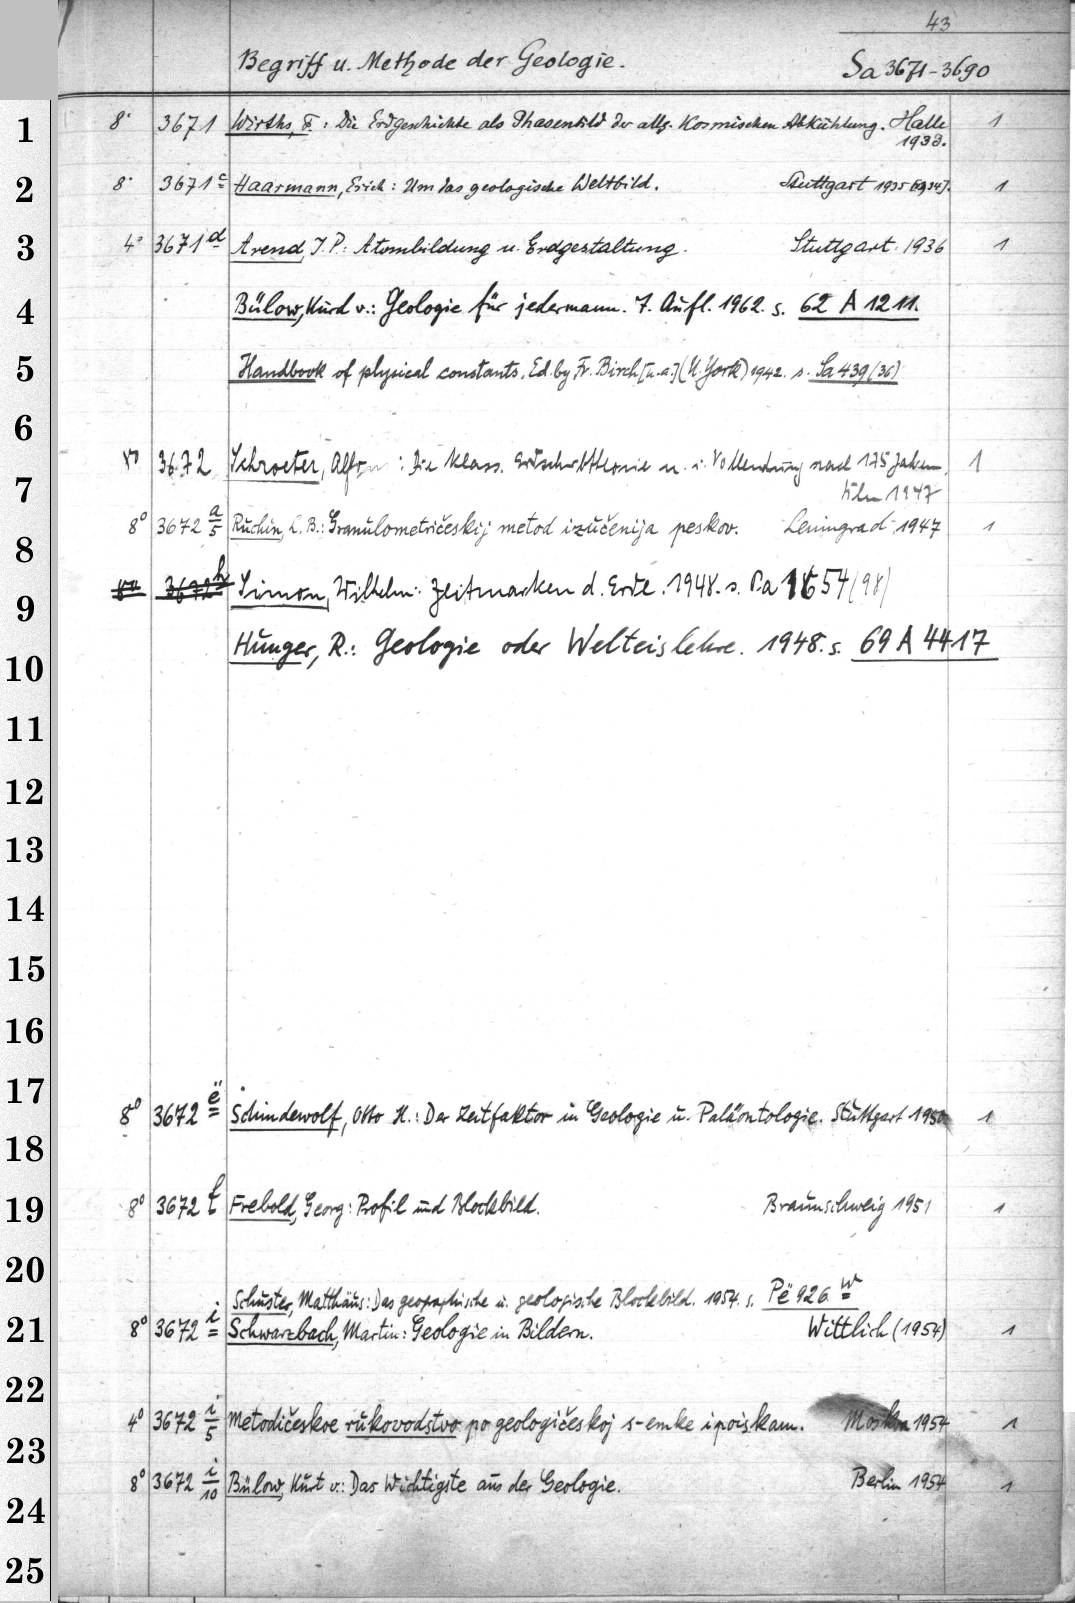 43
Begriff u. Methode der Geologie. Sa 3671-3690
1 8° 3671 Wirths, F.: Die Erdgeschichte als Phasenbild der allg. Kosmischen Abkühlung. Halle 1
1938.
2 8° 3671 c Haarmann, Erich: Um das geologische Weltbild. Stuttgart 1935 [1934]. 1
3 4° 3671 d Arend, J. P.: Atombildung u. Erdgestaltung. Stuttgart 1936 1
4 Bülow, Kurd v.: Geologie für jedermann. 7. Aufl. 1962. s. 62 A 1211.
5 Handbook of physical constants. Ed. by Fr. Birch [u.a.] (N. York) 1942. s. Sa 439 (36)
6
8° 3672 Schroeter, : Die klass. u. i. Vollendung nach 175 Jahren. 1
7 Köln 1947
8° 3672 a/5 Ruchin, L. B.: Granulometričeskij metod izučenija peskov. Leningrad 1947 1
8
3672 h Simon, Wilhelm: Zeitmarken d. Erde. 1948. s. 1654 (98)
9
Hunger, R.: Geologie oder Welteislehre. 1948. s. 69 A 4417
10
11
12
13
14
15
16
17
8° 3672 ë Schindewolf, Otto H.: Der Zeitfaktor in Geologie u. Paläontologie. Stuttgart 1950 1
18
19 8° 3672 f Frebold, Georg: Profil und Blockbild. Braunschweig 1951 1
20
Schuster, Matthäus: Das geographische u. geologische Blockbild. 1954. s. Pë 926 w
21 8° 3672 i Schwarzbach, Martin: Geologie in Bildern. Wittlich (1954) 1
22
4° 3672 i/5 Metodičeskoe rukovodstvo po geologičeskoj s-emke i poiskam. Moskva 1954 1
23
8° 3672 i/10 Bülow, Kurt v.: Das Wichtigste aus der Geologie. Berlin 1954 1
24
25